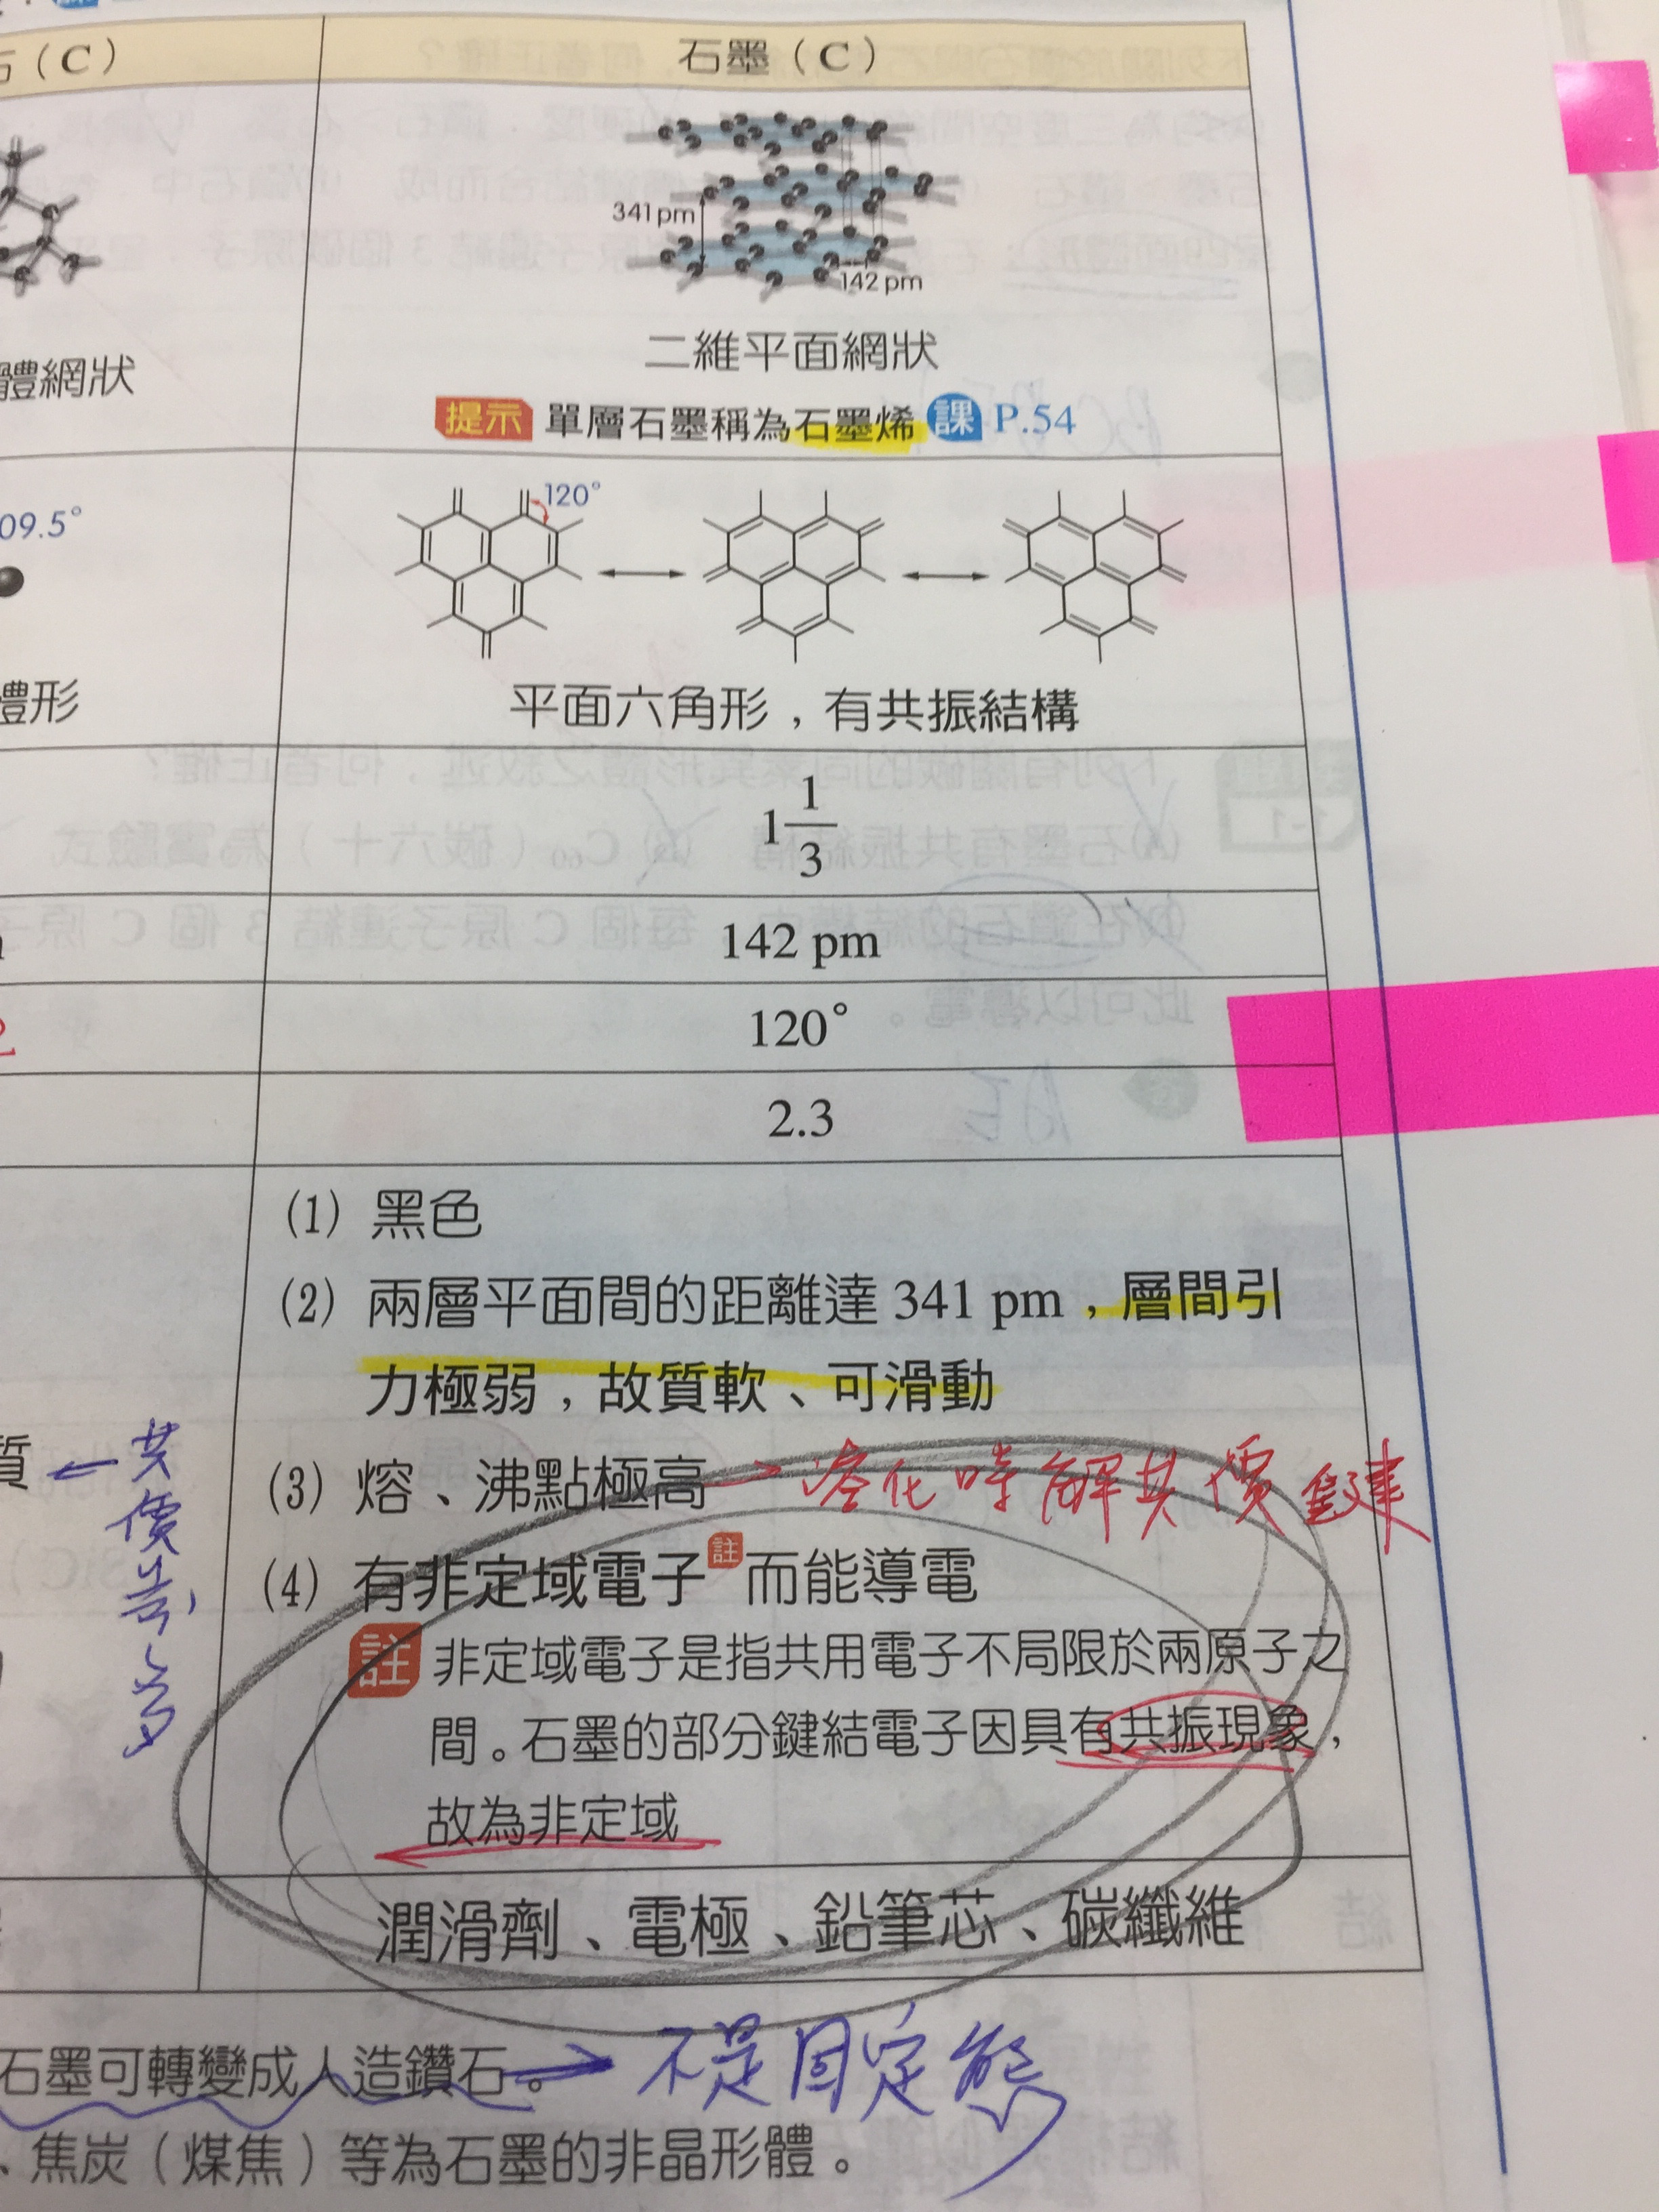 石(C)
石墨(C)
341 pm
142 pm
體網狀
二維平面網狀
提示 單層石墨稱為石墨烯 課 P.54
09.5°
120°
體形
平面六角形，有共振結構
1 1/3
142 pm
120°
2.3
(1) 黑色
(2) 兩層平面間的距離達 341 pm，層間引
力極弱，故質軟、可滑動
質 ← 共價鍵多
(3) 熔、沸點極高 → 熔化時解共價鍵
(4) 有非定域電子註而能導電
註 非定域電子是指共用電子不局限於兩原子之
間。石墨的部分鍵結電子因具有共振現象，
故為非定域
潤滑劑、電極、鉛筆芯、碳纖維
石墨可轉變成人造鑽石。→ 不是固定態
、焦炭（煤焦）等為石墨的非晶形體。